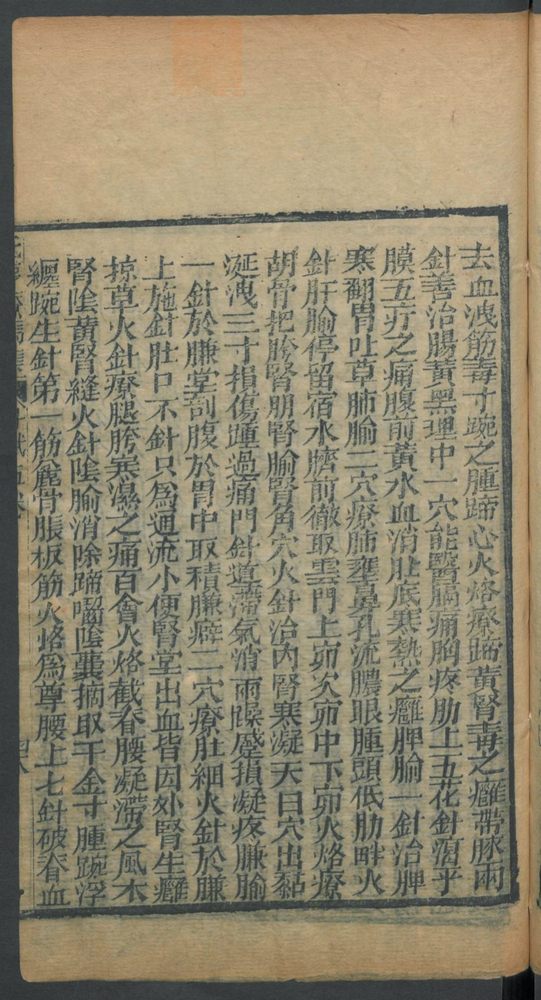 去血洩筋毒寸踠之腫蹄心火烙療蹄黃腎毒之癰帶脉兩
針善治腸黃黑理中一穴能醫膈痛胸疼肋上五花針瀉乎
膜五疔之痛腹前黃水血消肚底寒熱之癰脾腧一針治脾
寒翻胃吐草肺腧二穴療肺壅鼻孔流膿眼腫頭低肋畔火
針肝腧停留宿水臍前徹取雲門上夘次夘中下夘火烙療
胡骨把胯腎朋腎腧腎角穴火針治內腎寒凝天臼穴出黏
涎洩三寸損傷踵過痛門針道滯氣消雨臊感損凝疼膁腧
一針於膁堂剖腹於胃中取積膁癖二穴療肚細火針於膁
上施針肚口不針只爲通流小便腎堂出血皆因外腎生癰
掠草火針療腿胯寒濕之痛百會火烙截脊腰凝滯之風本
腎陰黃腎縫火針陰腧消除蹄囓陰囊摘取千金寸腫踠浮
纏踠生針第一筋麄骨脹板筋火烙爲尊腰上七針破脊血
四八